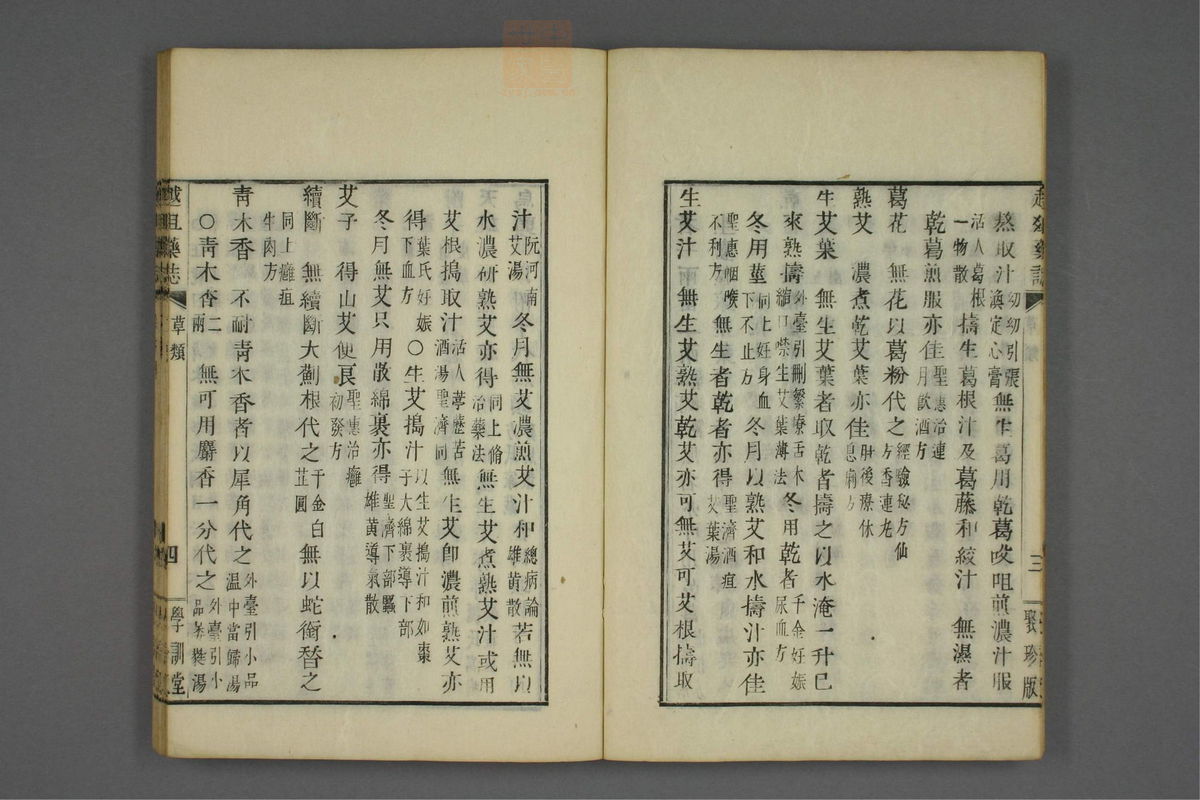 熬取汁幼幼引張渙定心膏無生葛用乾葛㕮咀煎濃汁服
活人葛根一物散擣生葛根汁及葛藤和絞汁 無濕者
乾葛煎服亦佳聖惠治連月飲酒方
葛花 無花以葛粉代之經驗秘方仙方香連老
熟艾 濃煮乾艾葉亦佳肘後療休息痢方
生艾葉 無生艾葉者取乾者擣之以水淹一升巳
來熟擣外臺引刪繁療舌木縮口噤生艾葉薄法冬用乾者千金好娠尿血方
冬用莖同上好身血下不止方冬月以熟艾和水擣汁亦佳
聖惠咽喉不利方無生者乾者亦得聖濟酒疽艾葉湯
生艾汁兩無生艾熟艾乾艾亦可無艾可艾根擣取
三
聚珍版
汁阮河南艾湯冬月無艾濃煎艾汁和總病論雄黃散若無以
水濃研熟艾亦得同上脩治藥法無生艾煮熟艾汁或用
艾根搗取汁活人葶藶苦酒湯聖濟同無生艾卽濃煎熟艾亦
得葉氏好娠下血方〇生艾搗汁以生艾搗汁和如棗子大綿裹導下部
冬月無艾只用散綿裹亦得聖濟下部䘌雄黃導氣散
艾子 得山艾便良聖惠治癰初發方
續斷 無續斷大薊根代之千金白芷圓無以蛇銜替之
同上癰疽牛肉方
靑木香 不耐靑木香者以犀角代之外臺引小品溫中當歸湯
〇靑木香二兩 無可用麝香一分代之外臺引小品莽麰湯
越俎藥誌
草類
四
學訓堂